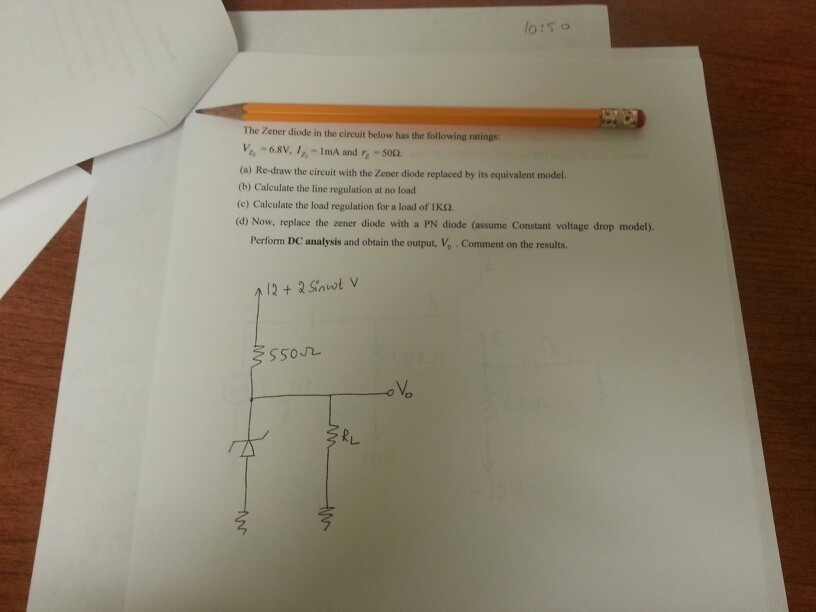 10:50
The Zener diode in the circuit below has the following ratings:
V_Z₁ = 6.8V, I_Z₁ = 1mA and r_Z = 50Ω.
(a) Re-draw the circuit with the Zener diode replaced by its equivalent model.
(b) Calculate the line regulation at no load
(c) Calculate the load regulation for a load of 1KΩ.
(d) Now, replace the zener diode with a PN diode (assume Constant voltage drop model).
Perform DC analysis and obtain the output, V₀ . Comment on the results.
12 + 2 Sinωt V
550Ω
V₀
R_L